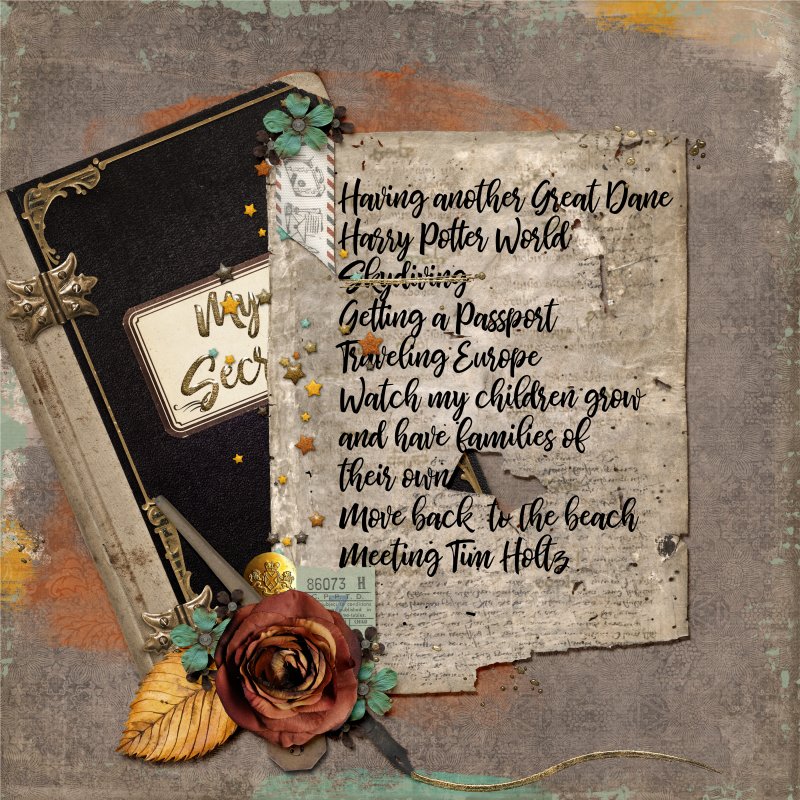 My
Secr
Having another Great Dane
Harry Potter World
Skydiving
Getting a Passport
Traveling Europe
Watch my children grow
and have families of
their own
Move back to the beach
Meeting Tim Holtz
86073 H